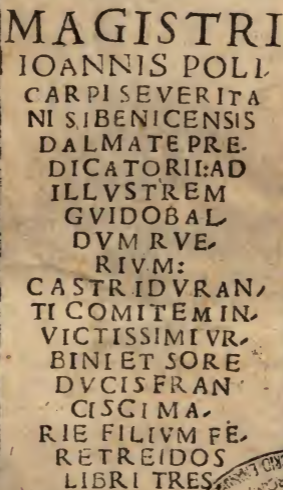 MAGISTRI
IOANNIS POLI
CARPI SEVERITA
NI SIBENICENSIS
DALMATE PRE-
DICATORII:AD
ILLVSTREM
GVIDOBAL
DVM RVE,
RIVM:
CASTRIDVRAN,
TI COMITEM IN,
VICTISSIMI VR,
BINI ET SORE
DVCIS FRAN
CISCI MA,
RIE FILIVM FE,
RETREIDOS
LIBRI TRES